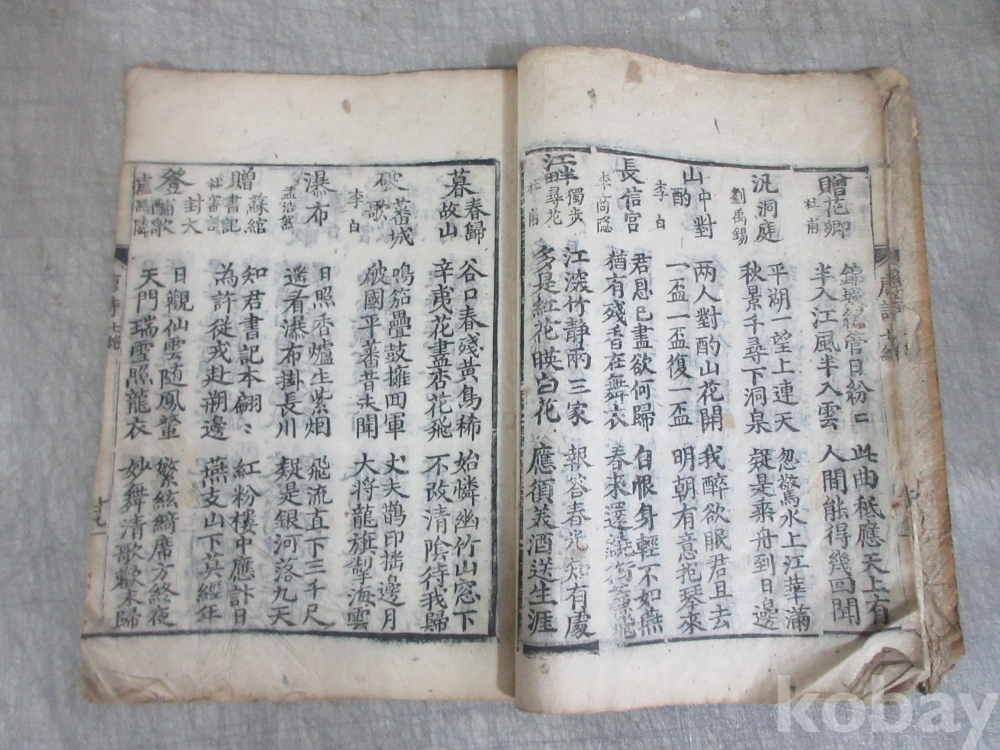 贈花卿
杜甫
錦城絲管日紛〻 此曲秪應天上有
半入江風半入雲 人間能得幾回聞
汎洞庭
劉禹錫
平湖一望上連天 忽驚水上江華滿
秋景千尋下洞泉 疑是乘舟到日邊
山中對
酌
李白
两人對酌山花開 我醉欲眠君且去
一盃一盃復一盃 明朝有意抱琴來
長信宮
李商隱
君恩已盡欲何歸 自恨身輕不如燕
猶有殘香在舞衣 春來還繞
江畔
獨步
尋花
杜甫
江深竹靜两三家 報答春光知有處
多是紅花暎白花 應須美酒送生涯
暮春歸
故山
谷口春殘黃鳥稀 始憐幽竹山窓下
辛夷花盡杏花飛 不改清陰待我歸
破蕃城
歌
李白
鳴笳疊鼓擁回軍 丈夫鵲印搖邊月
破國平蕃昔未聞 大将龍旗掣海雲
瀑布
孟浩然
日照香爐生紫烟 飛流直下三千尺
遙看瀑布掛長川 疑是銀河落九天
贈蘇綰
書記
杜審言
知君書記本翩〻 紅粉樓中應計日
為許從戎赴朔邊 燕支山下莫經年
登封大
酺歌
盧照隣
日觀仙雲随鳳輦 繁絃綺席方終夜
天門瑞雪照龍衣 妙舞清歌歡未歸
十九
kobay